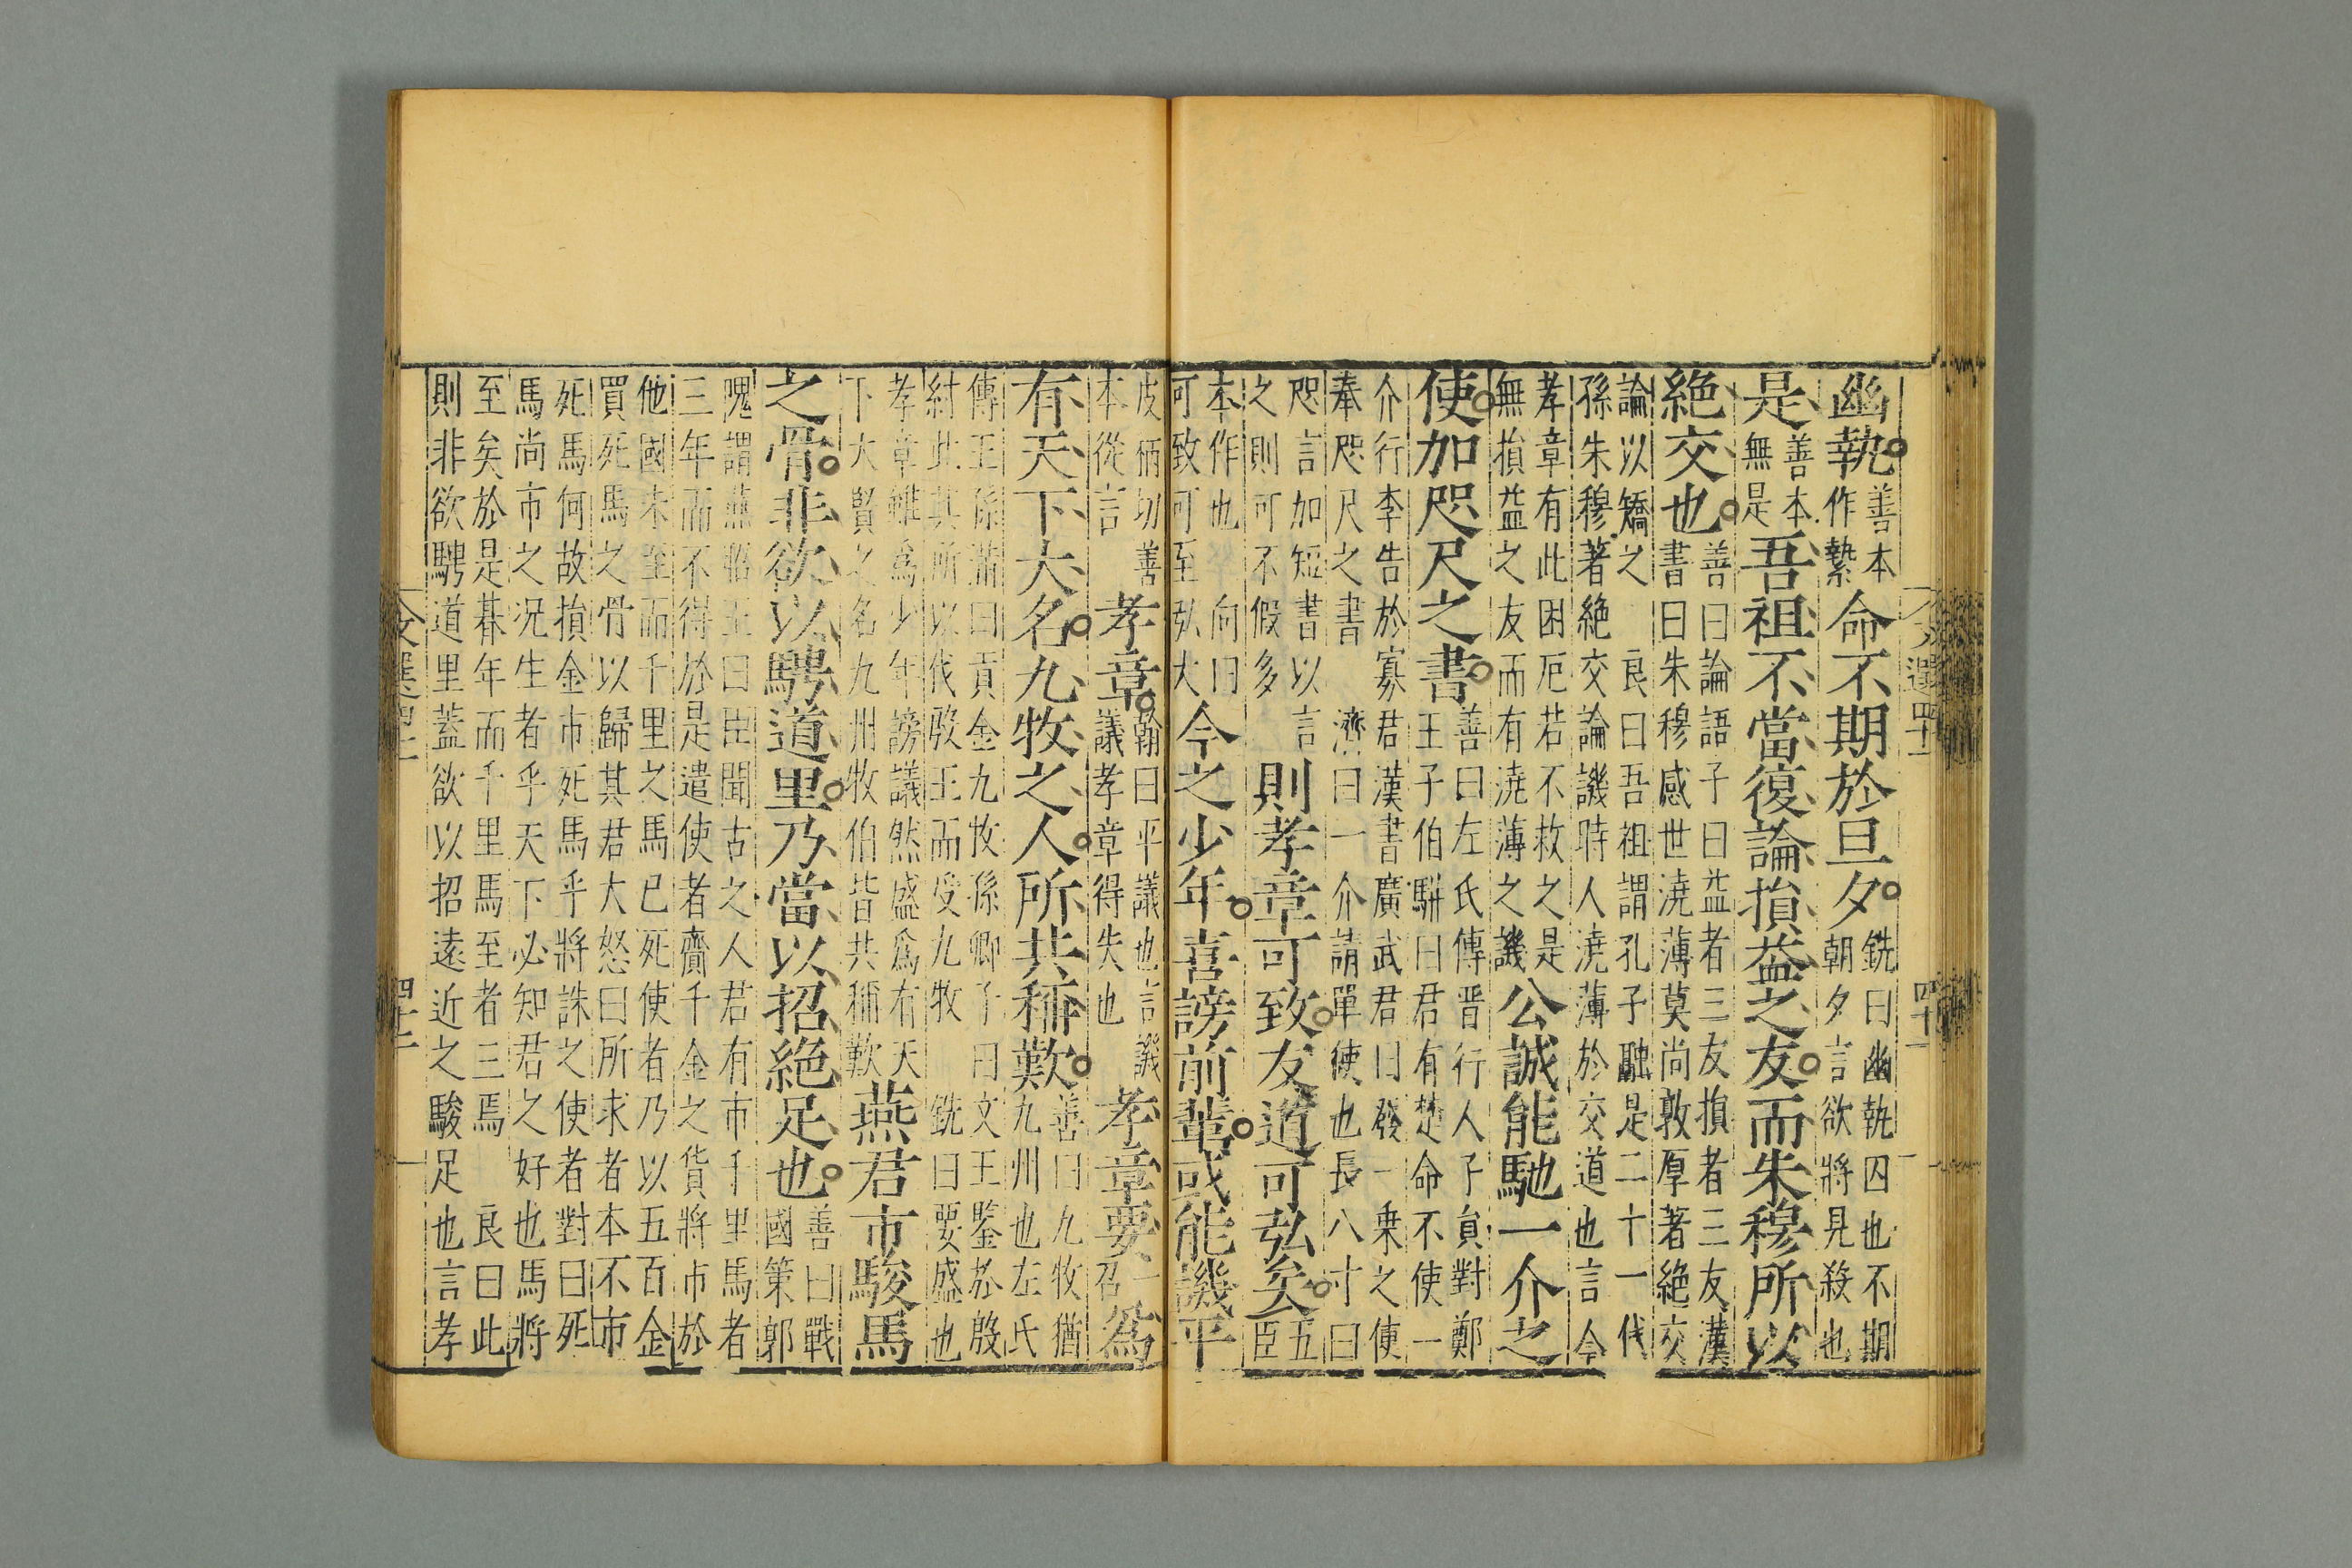 幽執善本作縶命不期於旦夕銑曰幽執囚也不期朝夕言欲將見殺也
是善本無是吾祖不當復論損益之友而朱穆所以
絶交也善曰論語子曰益者三友損者三友漢書曰朱穆感世澆薄莫尚敦厚著絶交
論以矯之 良曰吾祖謂孔子融是二十一代孫朱穆著絶交論譏時人澆薄於交道也言今
孝章有此困厄若不救之是無損益之友而有澆薄之譏公誠能馳一介之
使加咫尺之書善曰左氏傳晋行人子負對鄭王子伯駢曰君有楚命不使一
介行李告於寡君漢書廣武君曰發一乗之使奉咫尺之書 濟曰一介請單使也長八寸曰
咫言加短書以言之則可不假多則孝章可致友道可弘矣五臣
本作也 向曰可致可至弘大今之少年喜謗前輩或能譏平
皮柄切善本從言孝章翰曰平議也言譏議孝章得失也孝章要一召為
有天下大名九牧之人所共稱歎善曰九牧猶九州也左氏
傳王孫滿曰貢金九牧孫卿子曰文王鑒於殷紂此其所以代殷王而受九牧 銑曰要盛也
孝章雖為少年謗議然盛為有天下大賢之名九州牧伯皆共稱歎燕君市駿馬
之骨非欲以騁道里乃當以招絶足也善曰戰國策郭
隗謂燕昭王曰臣聞古之人君有市千里馬者三年而不得於是遣使者齎千金之貨將市於
他國未至而千里之馬已死使者乃以五百金買死馬之骨以歸其君大怒曰所求者本不市
死馬何故損金市死馬乎將誅之使者對曰死馬尚市之况生者乎天下必知君之好也馬將
至矣於是朞年而千里馬至者三焉 良曰此則非欲騁道里蓋欲以招遠近之駿足也言孝